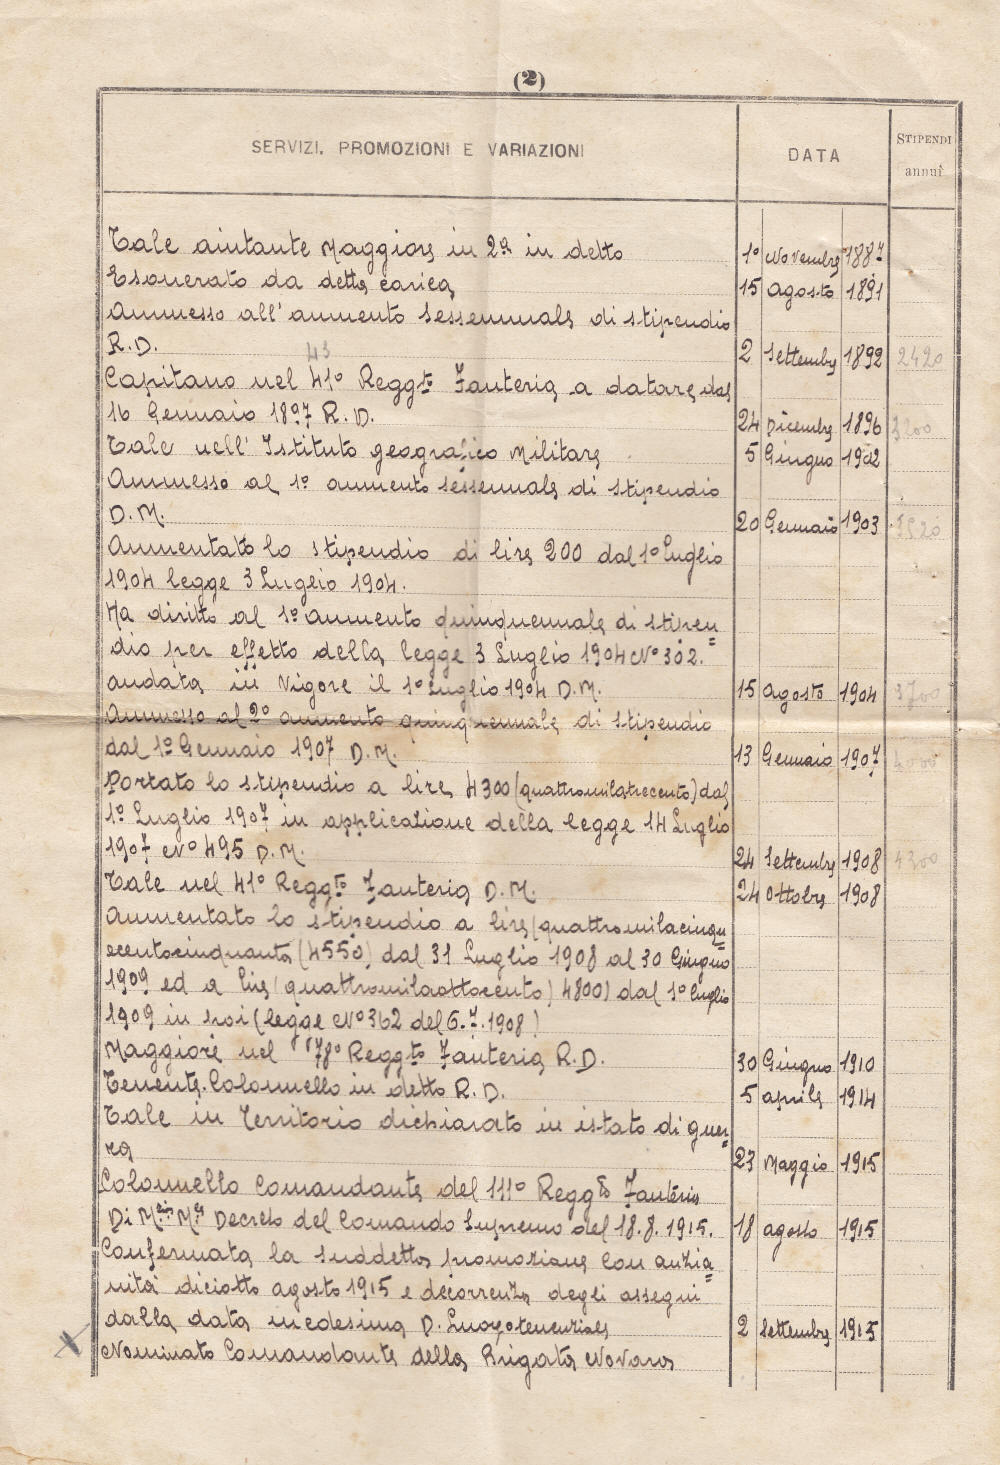 (2)
SERVIZI, PROMOZIONI E VARIAZIONI
DATA
STIPENDI
annui
Tale aiutante Maggiore in 2a in detto 1º Novembre 1887
Esonerato da detta carica 15 agosto 1891
Ammesso all'aumento sessennale di stipendio
R.D. 2 Settembre 1892 2420
43
Capitano nel 41º Reggto Fanteria a datare dal
16 Gennaio 1897 R.D. 24 Dicembre 1896 3200
Tale nell'Istituto geografico Militare 5 Giugno 1902
Ammesso al 1º aumento sessennale di stipendio
D.M. 20 Gennaio 1903 3520
Aumentato lo stipendio di lire 200 dal 1º Luglio
1904 legge 3 Luglio 1904.
Ha diritto al 1º aumento quinquennale di stipen=
dio per effetto della legge 3 Luglio 1904 Nº 302.
andata in Vigore il 1º Luglio 1904 D.M. 15 agosto 1904 3700
Ammesso al 2º aumento quinquennale di stipendio
dal 1º Gennaio 1907 D.M. 13 Gennaio 1907 4000
Portato lo stipendio a lire 4300 (quattromilatrecento) dal
1º Luglio 1907 in applicazione della legge 14 Luglio
1907 Nº 495 D.M. 24 Settembre 1908 4300
Tale nel 41º Reggto Fanteria D.M. 24 Ottobre 1908
Aumentato lo stipendio a lire (quattromilacinqu=
ecentocinquanta (4550) dal 31 Luglio 1908 al 30 Giugno
1909 ed a lire (quattromilaottocento) 4800) dal 1º Luglio
1909 in poi (legge Nº 362 del 6.7.1908)
Maggiore nel 78º Reggto Fanteria R.D. 30 Giugno 1910
Tenente Colonnello in detto R.D. 5 aprile 1914
Tale in Territorio dichiarato in istato di guer=
ra 23 Maggio 1915
Colonnello Comandante del 111º Reggto Fanteria
Decreto del Comando Supremo del 18.8.1915. 18 agosto 1915
Confermata la suddetta promozione con anzia=
nità diciotto agosto 1915 e decorrenza degli assegni
dalla data medesima D. Luogotenenziale 2 Settembre 1915
X Nominato Comandante della Brigata Novara